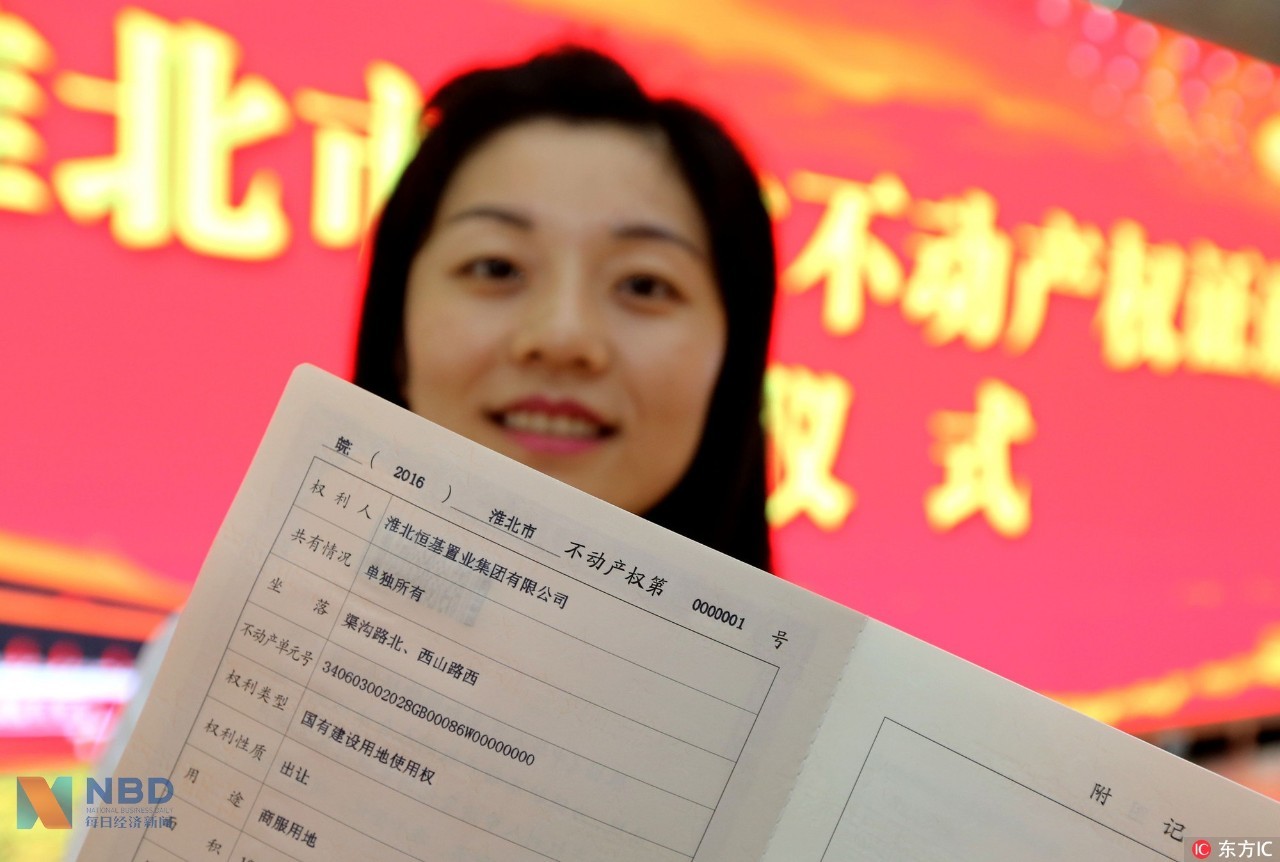 淮北市
不动产权证
仪 式
皖 ( 2016 ) 淮北市 不动产权第 0000001 号
权利人 淮北恒基置业集团有限公司
共有情况 单独所有
坐落 渠沟路北、西山路西
不动产单元号 340603002028GB00086W00000000
权利类型 国有建设用地使用权
权利性质 出让
用途 商服用地
面积
附记
NBD
NATIONAL BUSINESS DAILY
每日经济新闻
IC 东方IC